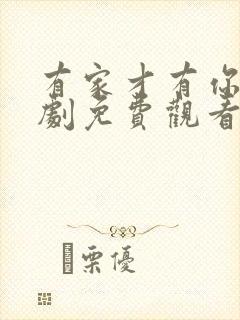 有家才有你
劇免費觀看
栗優